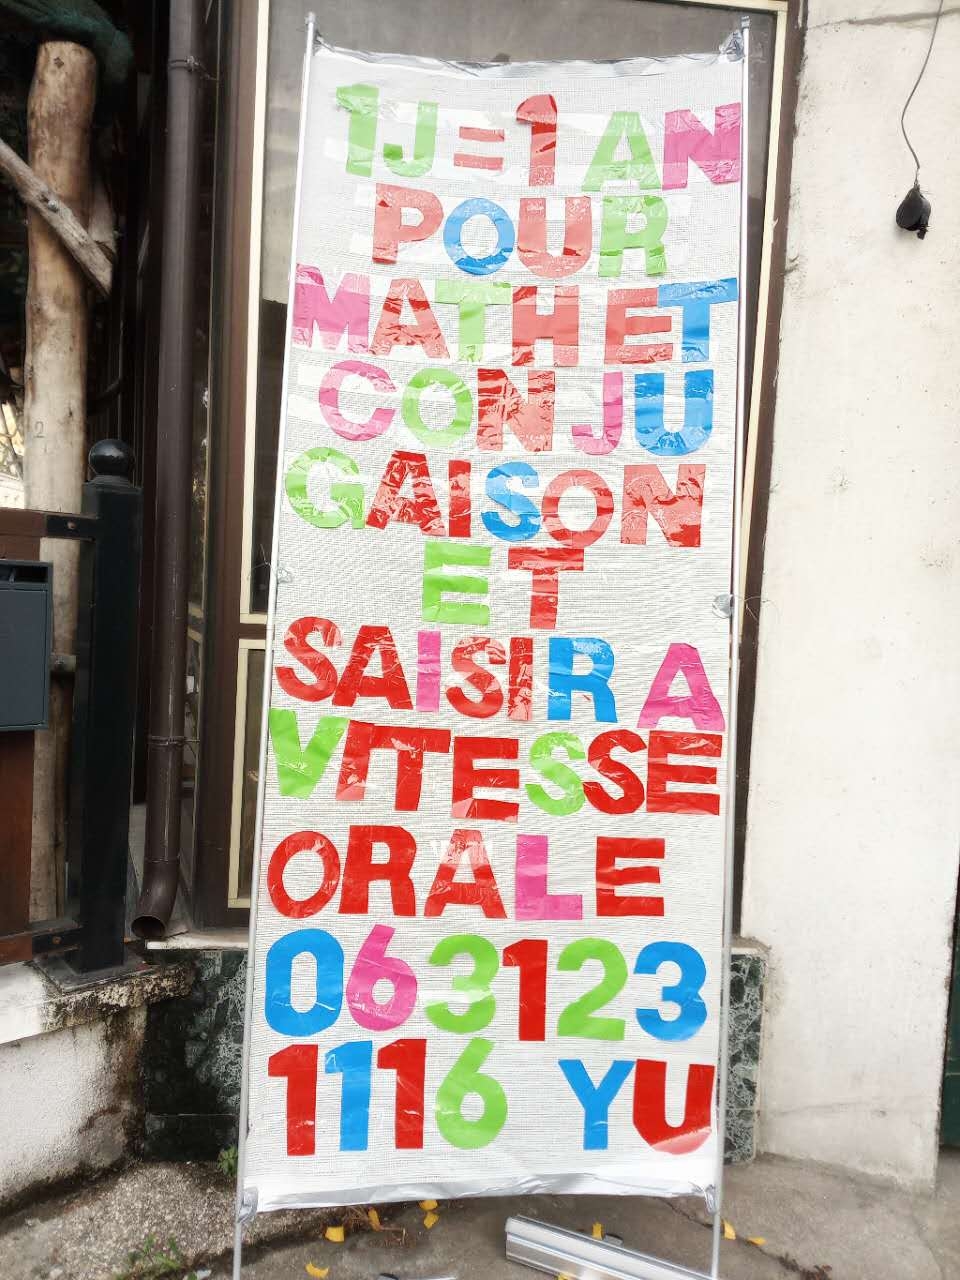 1J=1 AN
POUR
MATH ET
CONJU
GAISON
ET
SAISIR A
VITESSE
ORALE
063123
1116 YU